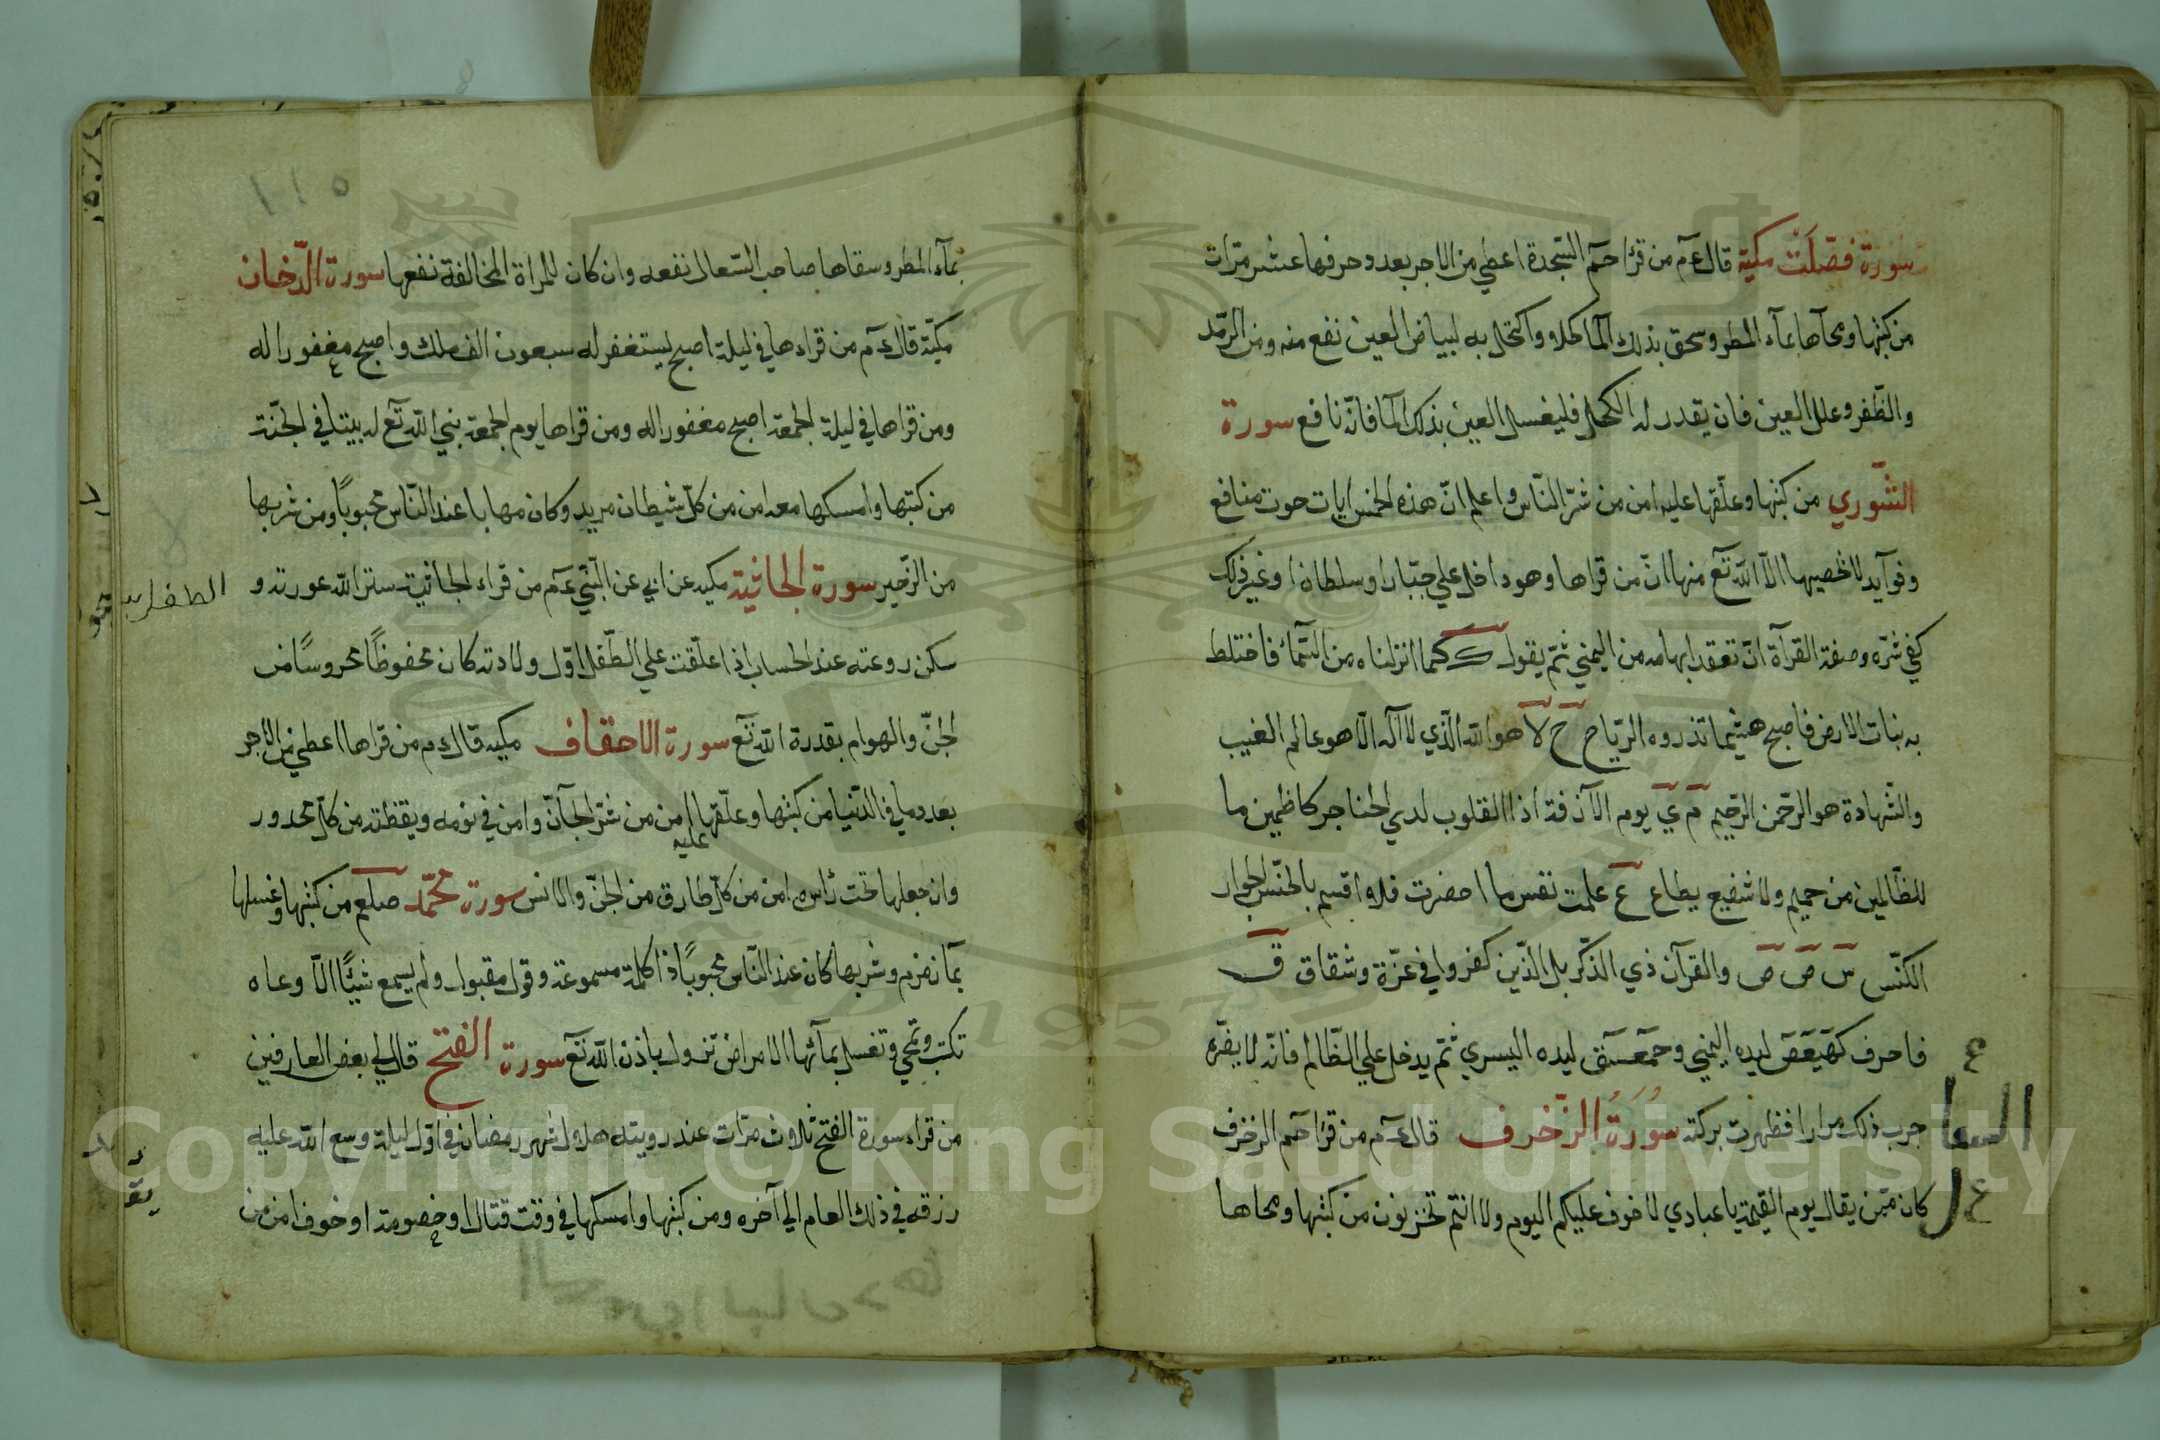 سورة فصّلت مكية قال ءم من قرا حم السجدة اعطي من الاجر بعدد حرفها عشر مرّات
من كتبها ومحاها بماء المطر وسحق بذلك الما كحلا واكتحل به لبياض العين نفع منه ومن الرمد
والظفر وعلل العين فان يقدر له الكحل فليغسل العين بذلك الما فانه نافع سورة
الشوري من كتبها وعلقها عليه امن من شرّ الناس واعلم انّ هذه الخمس ايات حوت منافع
وفوآيد لا تحصيها الا الله تع منها انّ من قراها وهو داخل علي جبّار او سلطان او غير ذلك
كفي شرّه وصفة القرآة انّ تعقد ابهامه من اليمني ثمّ يقول ك كما انزلناه من السمآء فاختلط
به نبات الارض فاصبح هشيما تذروه الرياح ح لا هو الله الّذي لا اله الا هو عالم الغيب
والشهادة هو الرحمن الرحيم م ي يوم الآزفة اذا القلوب لدي الحناجر كاظمين ما
للظالمين من حميم ولا شفيع يطاع ع علمت نفس ما احضرت فلا اقسم بالخنّس الجوار
الكنّس س ص ص والقرآن ذي الذكر بل الّذين كفروا في عزّة وشقاق ق
فاحرف كهيعص ليده اليمني وحمعسق ليده اليسري ثمّ يدخل علي الظالم فانّه لا يضرّه
جرب ذلك مرارا فظهرت بركته سورة الزخرف قال ءم من قرا حم الزخرف
كان ممّن يقال يوم القيمة يا عبادي لا خوف عليكم اليوم ولا انتم تحزنون من كتبها ومحاها
بمآء المطر وسقاها صاحب السعال نفعه وان كان للمراة المخالفة نفعها سورة الدّخان
مكيّة قال ءم من قراءها في ليلة اصبح يستغفر له سبعون الف ملك واصبح مغفورا له
ومن قراها في ليلة الجمعة اصبح مغفورا له ومن قراها يوم الجمعة بني الله تع له بيتا في الجنّة
من كتبها وامسكها معه امن من كلّ شيطان مريد وكان مهابا عند الناس محبوبًا ومن شربها
من الزحير سورة الجاثية مكيه عن ابي عن النّبي ءم من قراء الجاثية ستر الله عورته و
سكن روعته عند الحساب اذا علّقت علي الطفل اوّل ولادته كان محفوظًا محروسًا من
الجنّ والهوام بقدرة الله تع سورة الاحقاف مكيه قال ءم من قراها اعطي من الاجر
بعدد ما في الدنيا من كتبها وعلّقها عليه امن من شرّ الجآنّ وامن في نومه ويقظته من كلّ محدور
وان جعلها تحت راسه امن من كلّ طارق من الجنّ والانس سورة محمّد صلعم من كتبها وغسلها
بما زمزم وشربها كان عند الناس محبوبًا ذا كلمة مسموعة وقول مقبول ولم يسمع شيئًا الّا وعاه
تكتب وتمحي وتغسل بمآئها الامراض تزول باذن الله تع سورة الفتح قال لي بعض العارفين
من قراء سورة الفتح ثلاث مرّات عند روية هلال شهر رمضان في اوّل ليلة وسع الله عليه
رزقه في ذلك العام الي آخره ومن كتبها وامسكها في وقت قتال او خصومة او خوف امن من
الطفل
Copyright © King Saud University
1957